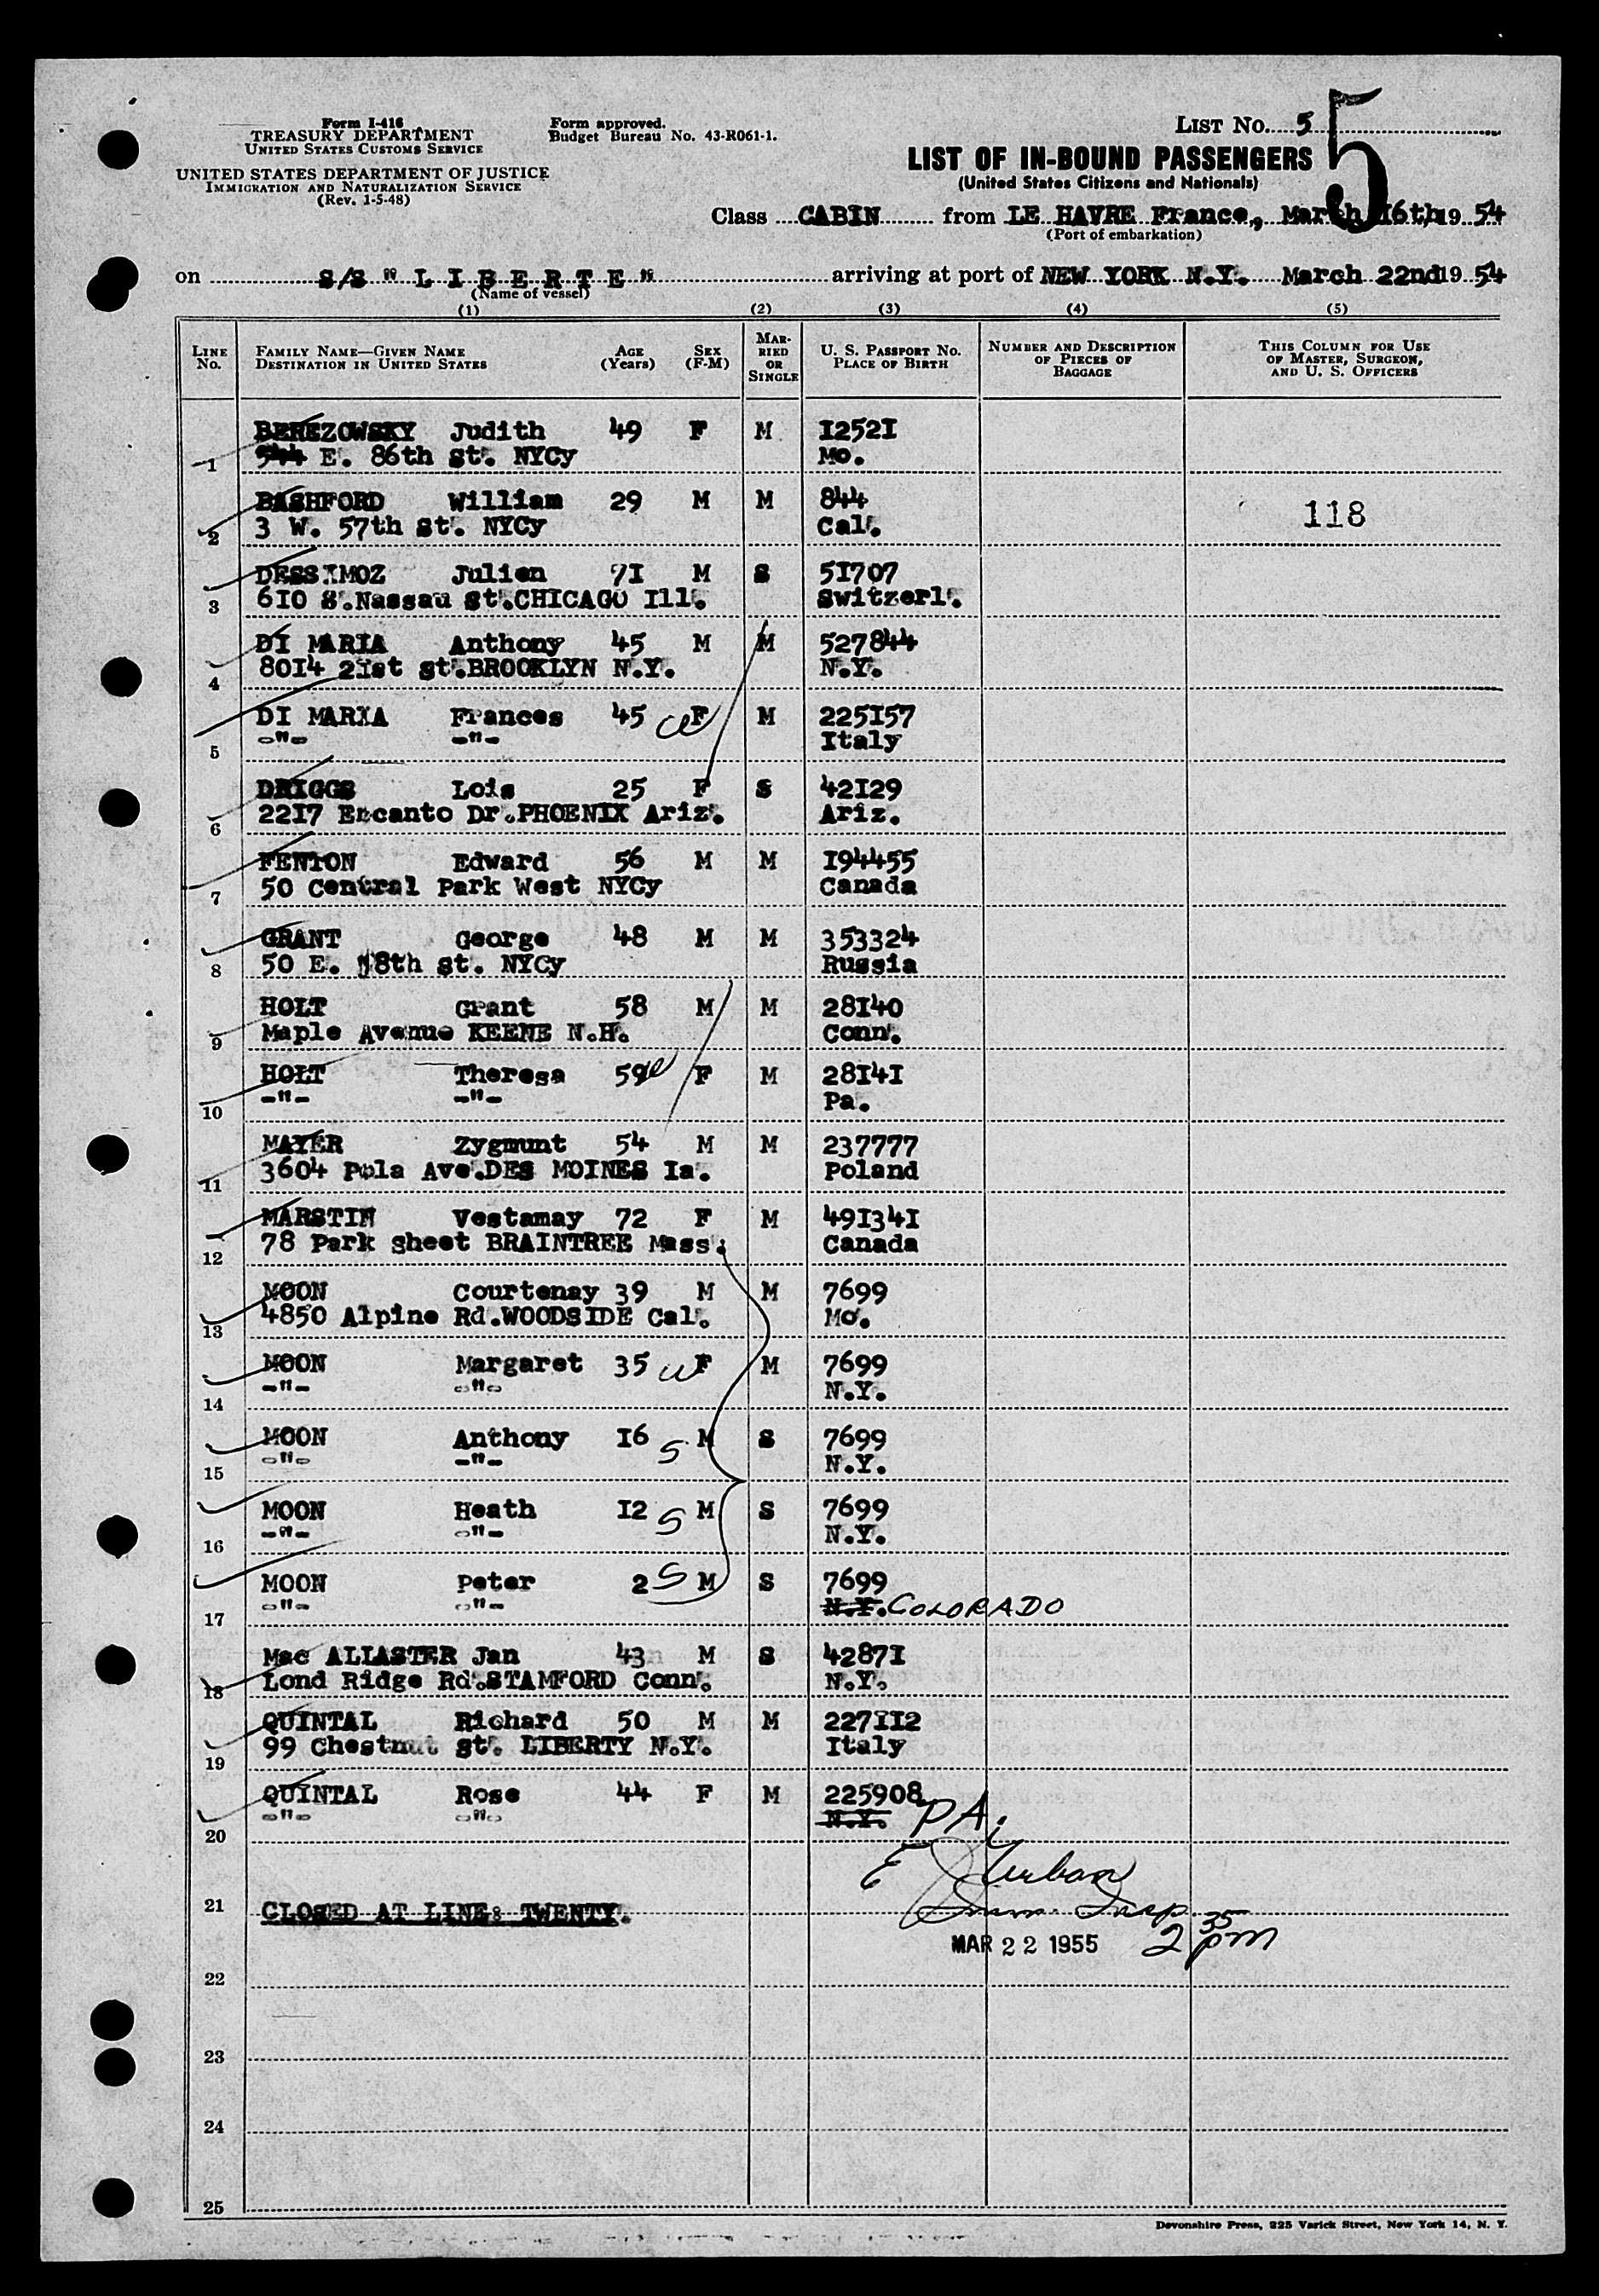 Form I-416
TREASURY DEPARTMENT
UNITED STATES CUSTOMS SERVICE
UNITED STATES DEPARTMENT OF JUSTICE
IMMIGRATION AND NATURALIZATION SERVICE
(Rev. 1-5-48)
Form approved.
Budget Bureau No. 43-R061-1.
LIST No. 5
5
LIST OF IN-BOUND PASSENGERS
(United States Citizens and Nationals)
Class CABIN from LE HAVRE France, March 16th 19 54
(Port of embarkation)
on S/S " L I B E R T E " arriving at port of NEW YORK N.Y. March 22nd 19 54
(Name of vessel)
(1) (2) (3) (4) (5)
LINE No. FAMILY NAME—GIVEN NAME DESTINATION IN UNITED STATES AGE (Years) SEX (F-M) MARRIED OR SINGLE U. S. PASSPORT No. PLACE OF BIRTH NUMBER AND DESCRIPTION OF PIECES OF BAGGAGE THIS COLUMN FOR USE OF MASTER, SURGEON, AND U. S. OFFICERS
1 BEREZOWSKY Judith 49 F M I252I
544 E. 86th St. NYCy Mo.
2 BASHFORD William 29 M M 844 118
3 W. 57th St. NYCy Cal.
3 DESSIMOZ Julien 7I M S 5I707
6I0 S.Nassau St.CHICAGO Ill. Switzerl.
4 DI MARIA Anthony 45 M M 527844
80I4 2Ist St.BROOKLYN N.Y. N.Y.
5 DI MARIA Frances 45 F M 225I57
-"- -"- Italy
6 DRIGGS Lois 25 F S 42I29
22I7 Encanto Dr.PHOENIX Ariz. Ariz.
7 FENTON Edward 56 M M I94455
50 Central Park West NYCy Canada
8 GRANT George 48 M M 353324
50 E. 8th St. NYCy Russia
9 HOLT Grant 58 M M 28I40
Maple Avenue KEENE N.H. Conn.
10 HOLT Theresa 59 F M 28I4I
-"- -"- Pa.
11 MAYER Zygmunt 54 M M 237777
3604 Pola Ave.DES MOINES Ia. Poland
12 MARSTIN Vestamay 72 F M 49I34I
78 Park sheet BRAINTREE Mass. Canada
13 MOON Courtenay 39 M M 7699
4850 Alpine Rd.WOODSIDE Cal. Mo.
14 MOON Margaret 35 W F M 7699
-"- -"- N.Y.
15 MOON Anthony I6 S M S 7699
-"- -"- N.Y.
16 MOON Heath I2 S M S 7699
-"- -"- N.Y.
17 MOON Peter 2 S M S 7699
-"- -"- N.Y. COLORADO
18 Mac ALLASTER Jan 43 M S 4287I
Lond Ridge Rd.STAMFORD Conn. N.Y.
19 QUINTAL Richard 50 M M 227II2
99 Chestnut St. LIBERTY N.Y. Italy
20 QUINTAL Rose 44 F M 225908
-"- -"- N.Y. PA.
21 CLOSED AT LINE: TWENTY.
E Urban
Imm. Insp.
MAR 22 1955 2 35 pm
22
23
24
25
Devonshire Press, 225 Varick Street, New York 14, N. Y.